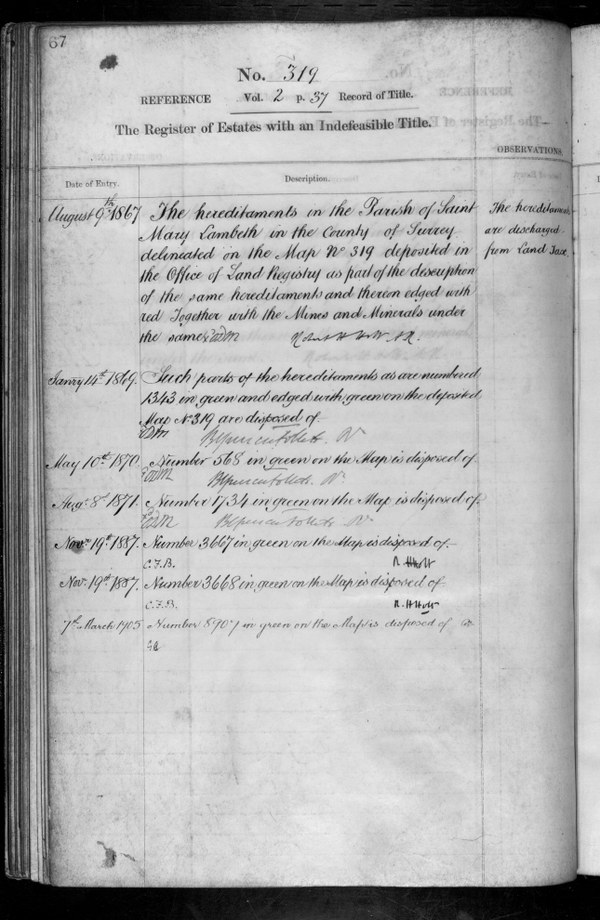 67
No. 319
REFERENCE Vol. 2 p. 37 Record of Title.
The Register of Estates with an Indefeasible Title.
OBSERVATIONS.
Date of Entry.
Description.
August 9th 1867
The hereditaments in the Parish of Saint
Mary Lambeth in the County of Surrey
delineated on the Map No 319 deposited in
the Office of Land Registry as part of the description
of the same hereditaments and thereon edged with
red Together with the Mines and Minerals under
the same
The hereditaments
are discharged
from Land Tax.
Janry 14th 1869.
Such parts of the hereditaments as are numbered
1343 in green and edged with green on the deposited
Map No 319 are disposed of
May 10th 1870.
Number 568 in green on the Map is disposed of
Augt 8th 1871.
Number 1734 in green on the Map is disposed of
Novr 19th 1887.
Number 3667 in green on the Map is disposed of
C.F.B. R. H Holt
Nov. 19th 1887.
Number 3668 in green on the Map is disposed of
C.F.B. R. H Holt
7th March 1905
Number 8907 in green on the Map is disposed of